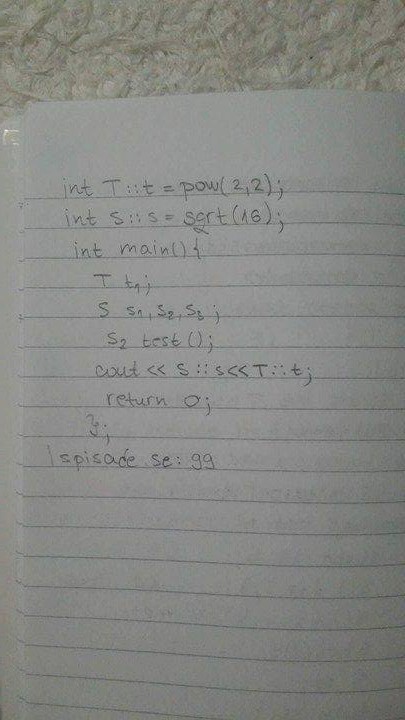 int T::t = pow(2,2);
int S::s = sqrt(16);
int main(){
T t1;
S s1,s2,s3;
s2 test();
cout << S::s<<T::t;
return 0;
};
Ispisaće se: 99